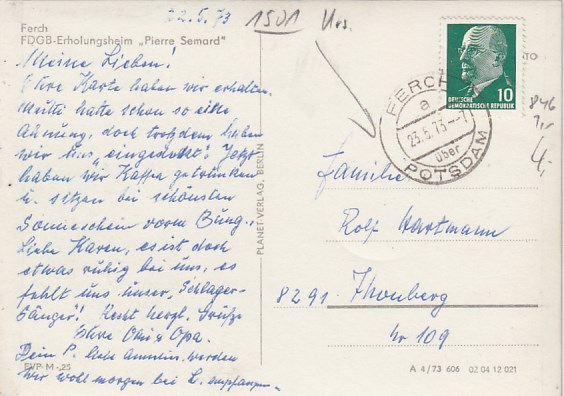 Ferch
FDGB-Erholungsheim „Pierre Semard"
22.5.73
1501 Urs.
Meine Lieben!
Eure Karte haben wir erhalten.
Mutti hatte schon so eine
Ahnung, doch trotzdem haben
wir uns „eingedeckt". Jetzt
haben wir Kaffee getrunken
u. sitzen bei schönsten
Sonnenschein vorm Bung.
Liebe Karen, es ist doch
etwas ruhig bei uns, es
fehlt uns unser „Schlager-
sänger"! Recht herzl. Grüße
Eure Omi & Opa.
Dein P. wir
wir wohl morgen bei L. empfangen.
EVP M -,25
PLANET-VERLAG, BERLIN
DEUTSCHE
DEMOKRATISCHE REPUBLIK
10
FERCH
a
23.5.73
über
POTSDAM
846
1,-
4,-
Familie
Rolf Hartmann
8291 Thonberg
Nr 109
A 4/73 606 02 04 12 021